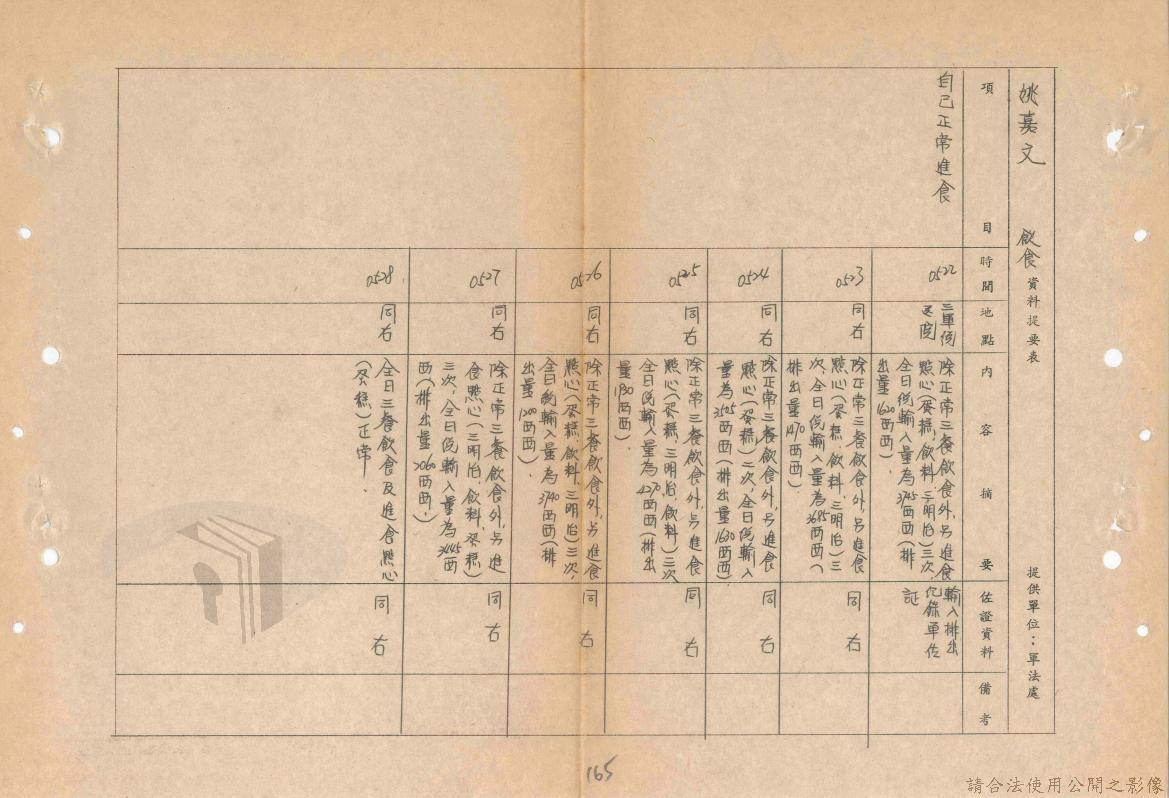 姚嘉文 飲食資料提要表 提供單位：軍法處
項目
時間
地點
內容摘要
佐證資料
備考
自己正常進食
0522
三軍總
醫院
除正常三餐飲食外，另進食
點心（蛋糕，飲料，三明治）三次，
全日總輸入量為3745西西（排
出量1620西西）．
輸入排出
紀錄單佐
証
0523
同右
除正常三餐飲食外，另進食
點心（蛋糕，飲料，三明治）三
次，全日總輸入量為3685西西（
排出量1470西西）．
同右
0524
同右
除正常三餐飲食外，另進食
點心（蛋糕）二次，全日總輸入
量為3505西西（排出量1630西西）．
同右
0525
同右
除正常三餐飲食外，另進食
點心（蛋糕，三明治，飲料）三次
全日總輸入量為4270西西（排出
量1930西西）．
同右
0526
同右
除正常三餐飲食外，另進食
點心（蛋糕，飲料，三明治）三次，
全日總輸入量為3740西西（排
出量1200西西）．
同右
0527
同右
除正常三餐飲食外，另進
食點心（三明治，飲料，蛋糕）
三次，全日總輸入量為3445西
西（排出量2060西西．）
同右
0528
同右
全日三餐飲食及進食點心
（蛋糕）正常．
同右
165
請合法使用公開之影像